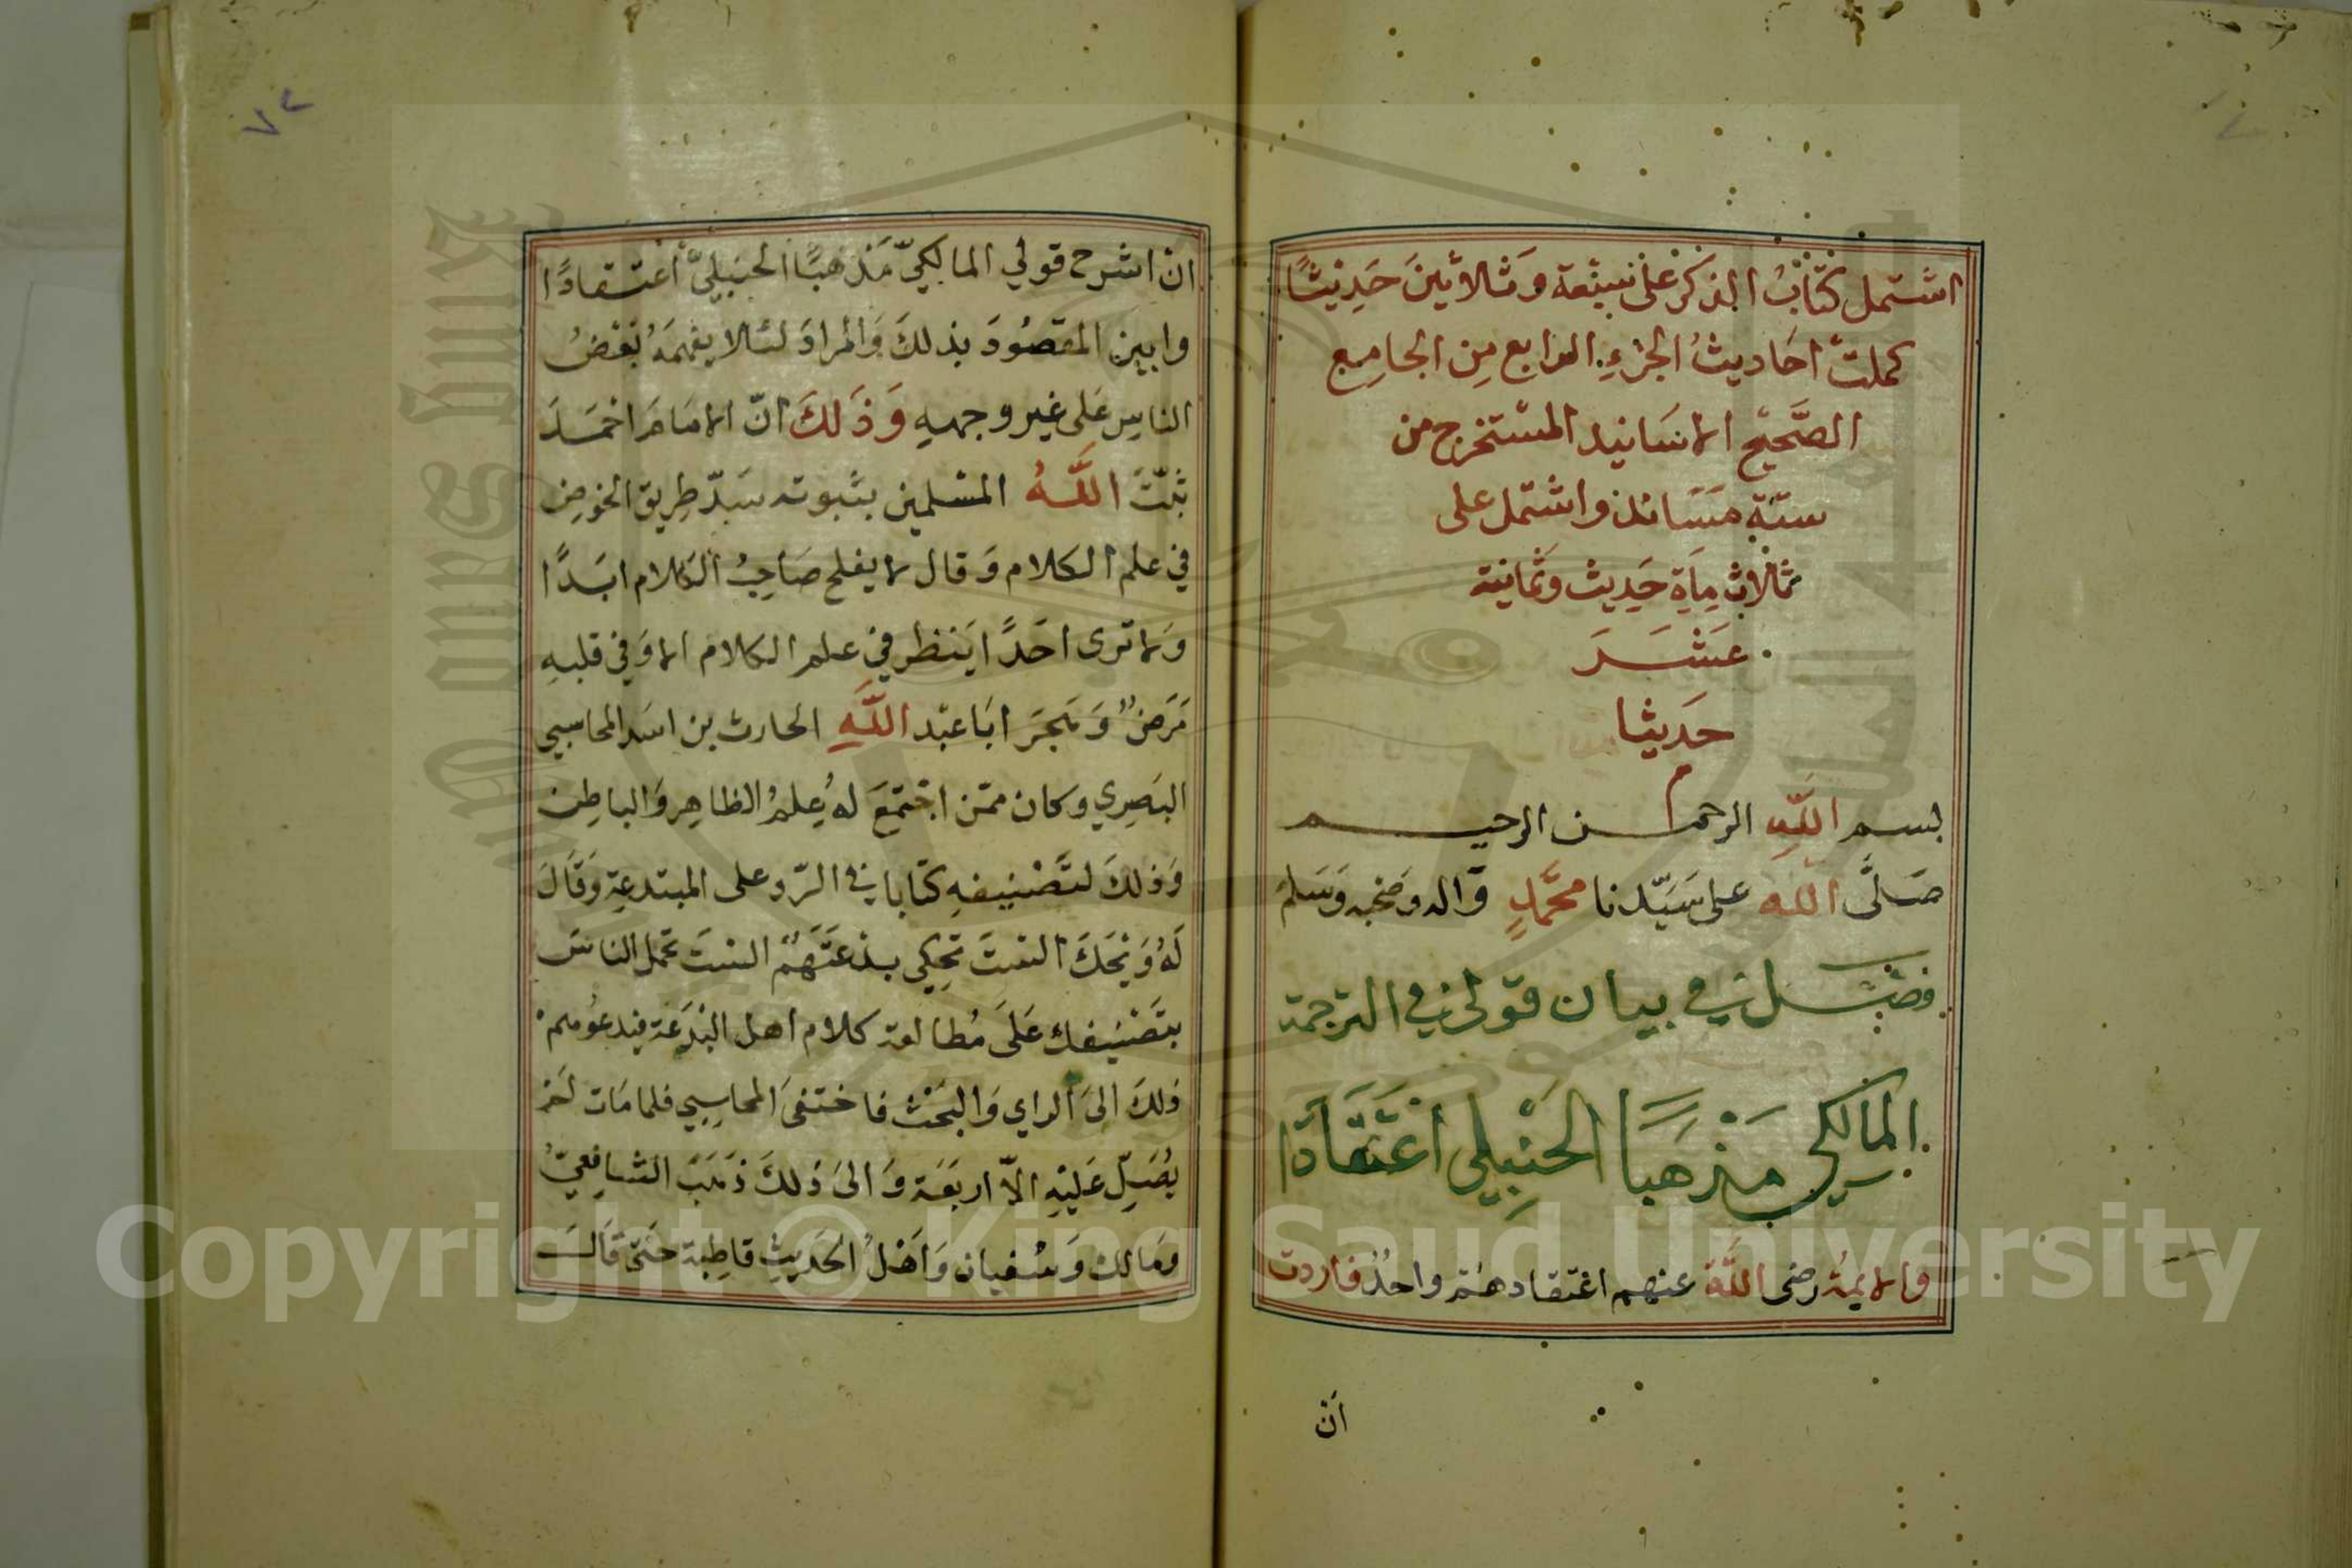 اشتمل كتاب الذكر على سبعة وثلاثين حديثًا
كملت احاديث الجزء الرابع من الجامع
الصحيح الاسانيد المستخرج من
ستة مسانيد واشتمل على
ثلاث ماية حديث وثمانية
عشر
حديثا
بسم الله الرحمن الرحيم
صلى الله على سيدنا محمد واله وصحبه وسلم
فصل في بيان قولي في الترجمة
المالكي مذهبًا الحنبلي اعتقادًا
والايمة رضى الله عنهم اعتقادهم واحد فاردت
ان
٧٢
ان اشرح قولي المالكيّ مذهبًا الحنبليّ اعتقادًا
وابين المقصود بذلك والمراد لئلا يفهمه بعض
الناس على غير وجهه وذلك انّ الامام احمد
ثبّت الله المسلمين بثبوته سدّ طريق الخوض
في علم الكلام وقال لا يفلح صاحب الكلام ابدًا
ولا ترى احدًا ينظر في علم الكلام الا وفي قلبه
مرض وهجر ابا عبد الله الحارث بن اسد المحاسبي
البصري وكان ممّن اجتمع له علم الظاهر والباطن
وذلك لتصنيفه كتابا في الرّد على المبتدعة وقال
له ويحك الست تحكي بدعتهم الست تحمل الناس
بتصنيفك على مطالعة كلام اهل البدعة فيدعوهم
ذلك الى الراي والبحث فاختفى المحاسبي فلما مات لم
يصلّ عليه الاّ اربعة والى ذلك ذهب الشافعيّ
ومالك وسفيان واهل الحديث قاطبة حتى قال
Copyright © King Saud University